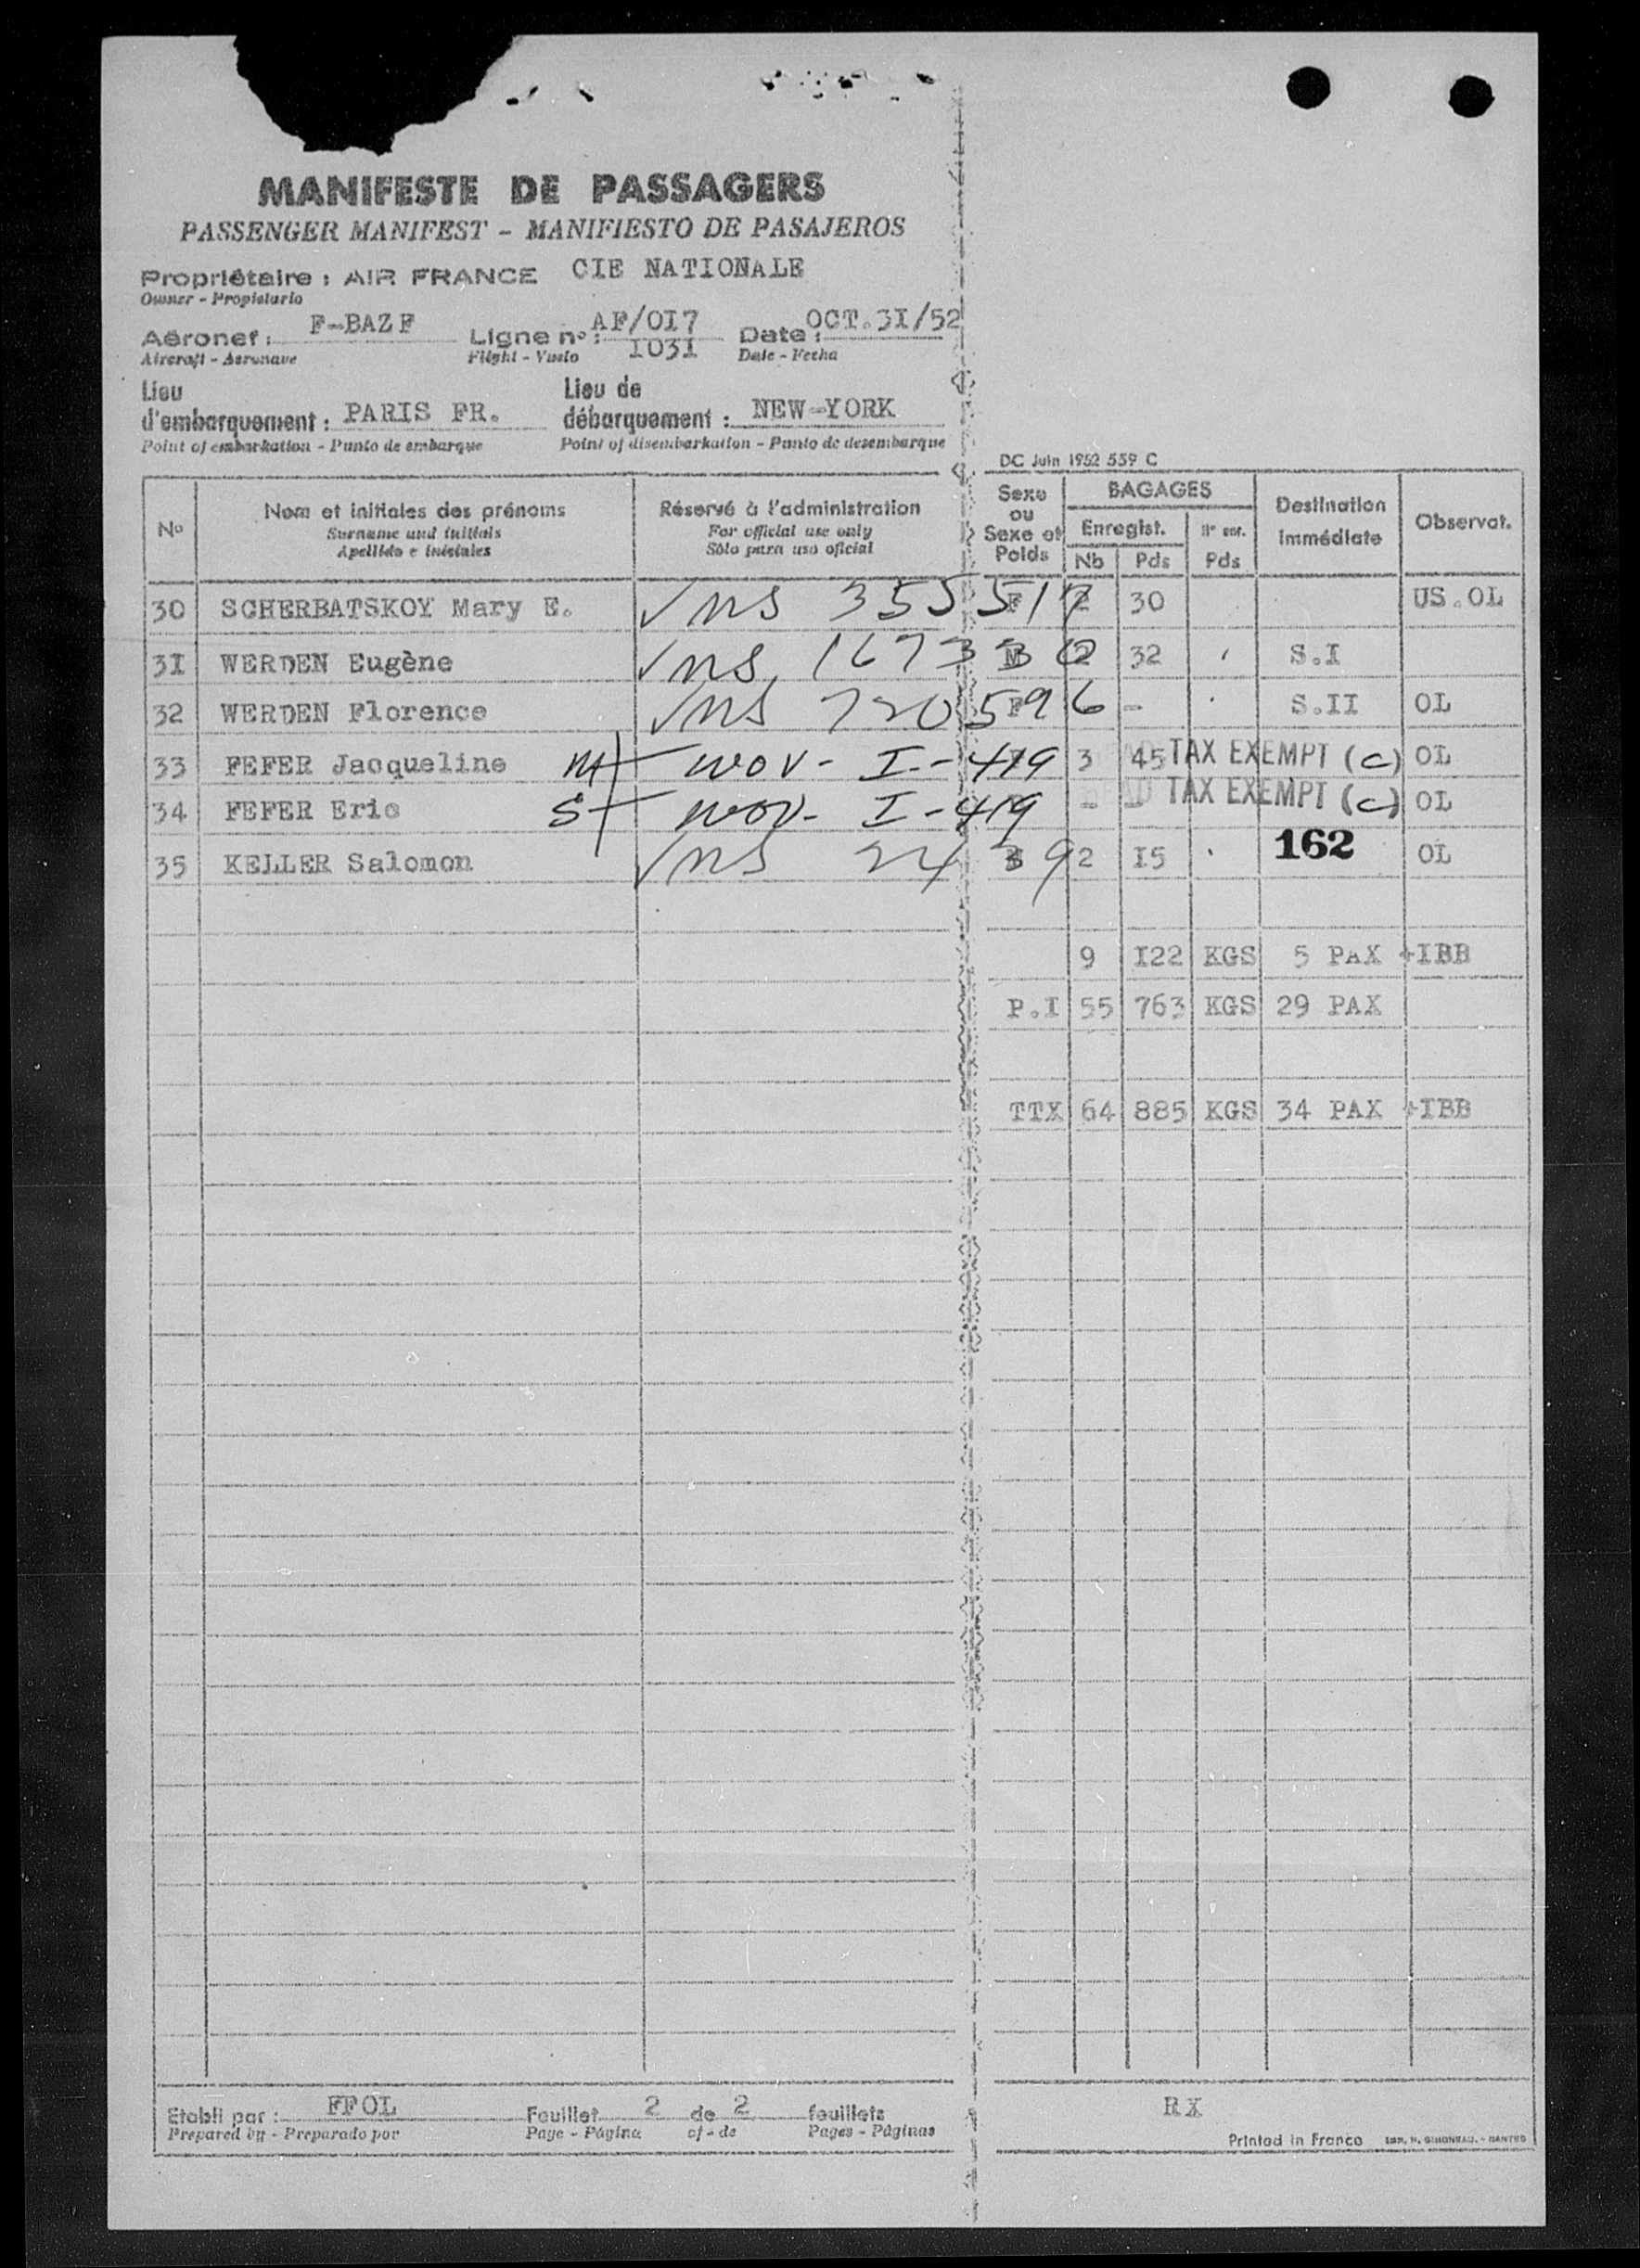 MANIFESTE DE PASSAGERS
PASSENGER MANIFEST - MANIFIESTO DE PASAJEROS
Propriétaire : AIR FRANCE CIE NATIONALE
Owner - Propietario
Aéronef : F-BAZF Ligne no : AF/OI7 Date : OCT.3I/52
Aircraft - Aeronave Flight - Vuelo I03I Date - Fecha
Lieu Lieu de
d'embarquement : PARIS FR. débarquement : NEW-YORK
Point of embarkation - Punto de embarque Point of disembarkation - Punto de desembarque
DC Juin 1952 559 C
No Nom et initiales des prénoms Réservé à l'administration Sexe ou Sexe et Poids BAGAGES Destination immédiate Observat.
Surname and initials For official use only Enregist. Nb Pds Pds
Apellido e iniciales Sólo para uso oficial
30 SCHERBATSKOY Mary E. √ns 355517 F 2 30 US.OL
3I WERDEN Eugène √ns 167330 M 2 32 S.I
32 WERDEN Florence √ns 720596 F - S.II OL
33 FEFER Jacqueline M I-419 3 45 TAX EXEMPT (c) OL
34 FEFER Eric S I-419 - - TAX EXEMPT (c) OL
35 KELLER Salomon √ns 2439 2 I5 162 OL
9 I22 KGS 5 PAX +IBB
P.I 55 763 KGS 29 PAX
TTX 64 885 KGS 34 PAX +IBB
Etabli par : FFOL Feuillet 2 de 2 feuillets RX
Prepared by - Preparado por Page - Página of - de Pages - Páginas
Printed in France IMP. H. SIMONEAU. - NANTES